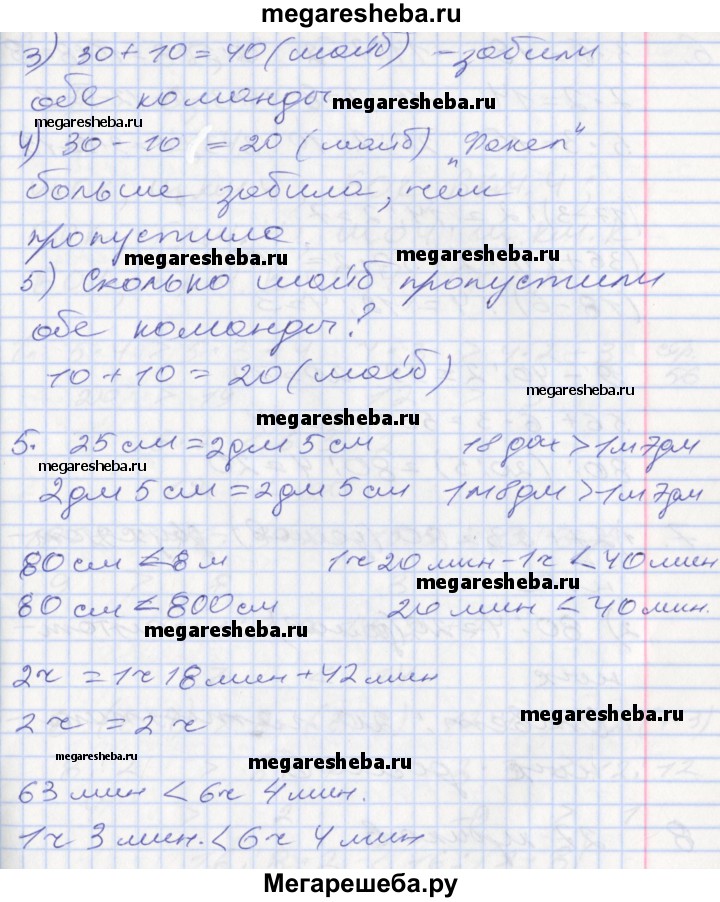 megaresheba.ru
3) 30 + 10 = 40 (шайб) - забили
обе команды
megaresheba.ru
megaresheba.ru
4) 30 - 10 = 20 (шайб) "Факел"
больше забила, чем
пропустила
megaresheba.ru
megaresheba.ru
5) Сколько шайб пропустили
обе команды?
10 + 10 = 20 (шайб)
megaresheba.ru
megaresheba.ru
5. 25 см = 2дм 5 см 18 дм > 1м 7дм
megaresheba.ru
2дм 5 см = 2дм 5 см 1м 8дм > 1м 7дм
80 см < 8 м 1ч 20 мин - 1ч < 40 мин
megaresheba.ru
80 см < 800 см 20 мин < 40 мин.
megaresheba.ru
2ч = 1ч 18 мин + 42 мин
2 ч = 2 ч
megaresheba.ru
megaresheba.ru
megaresheba.ru
63 мин < 6ч 4 мин.
1ч 3 мин. < 6ч 4 мин
Мегарешеба.ру